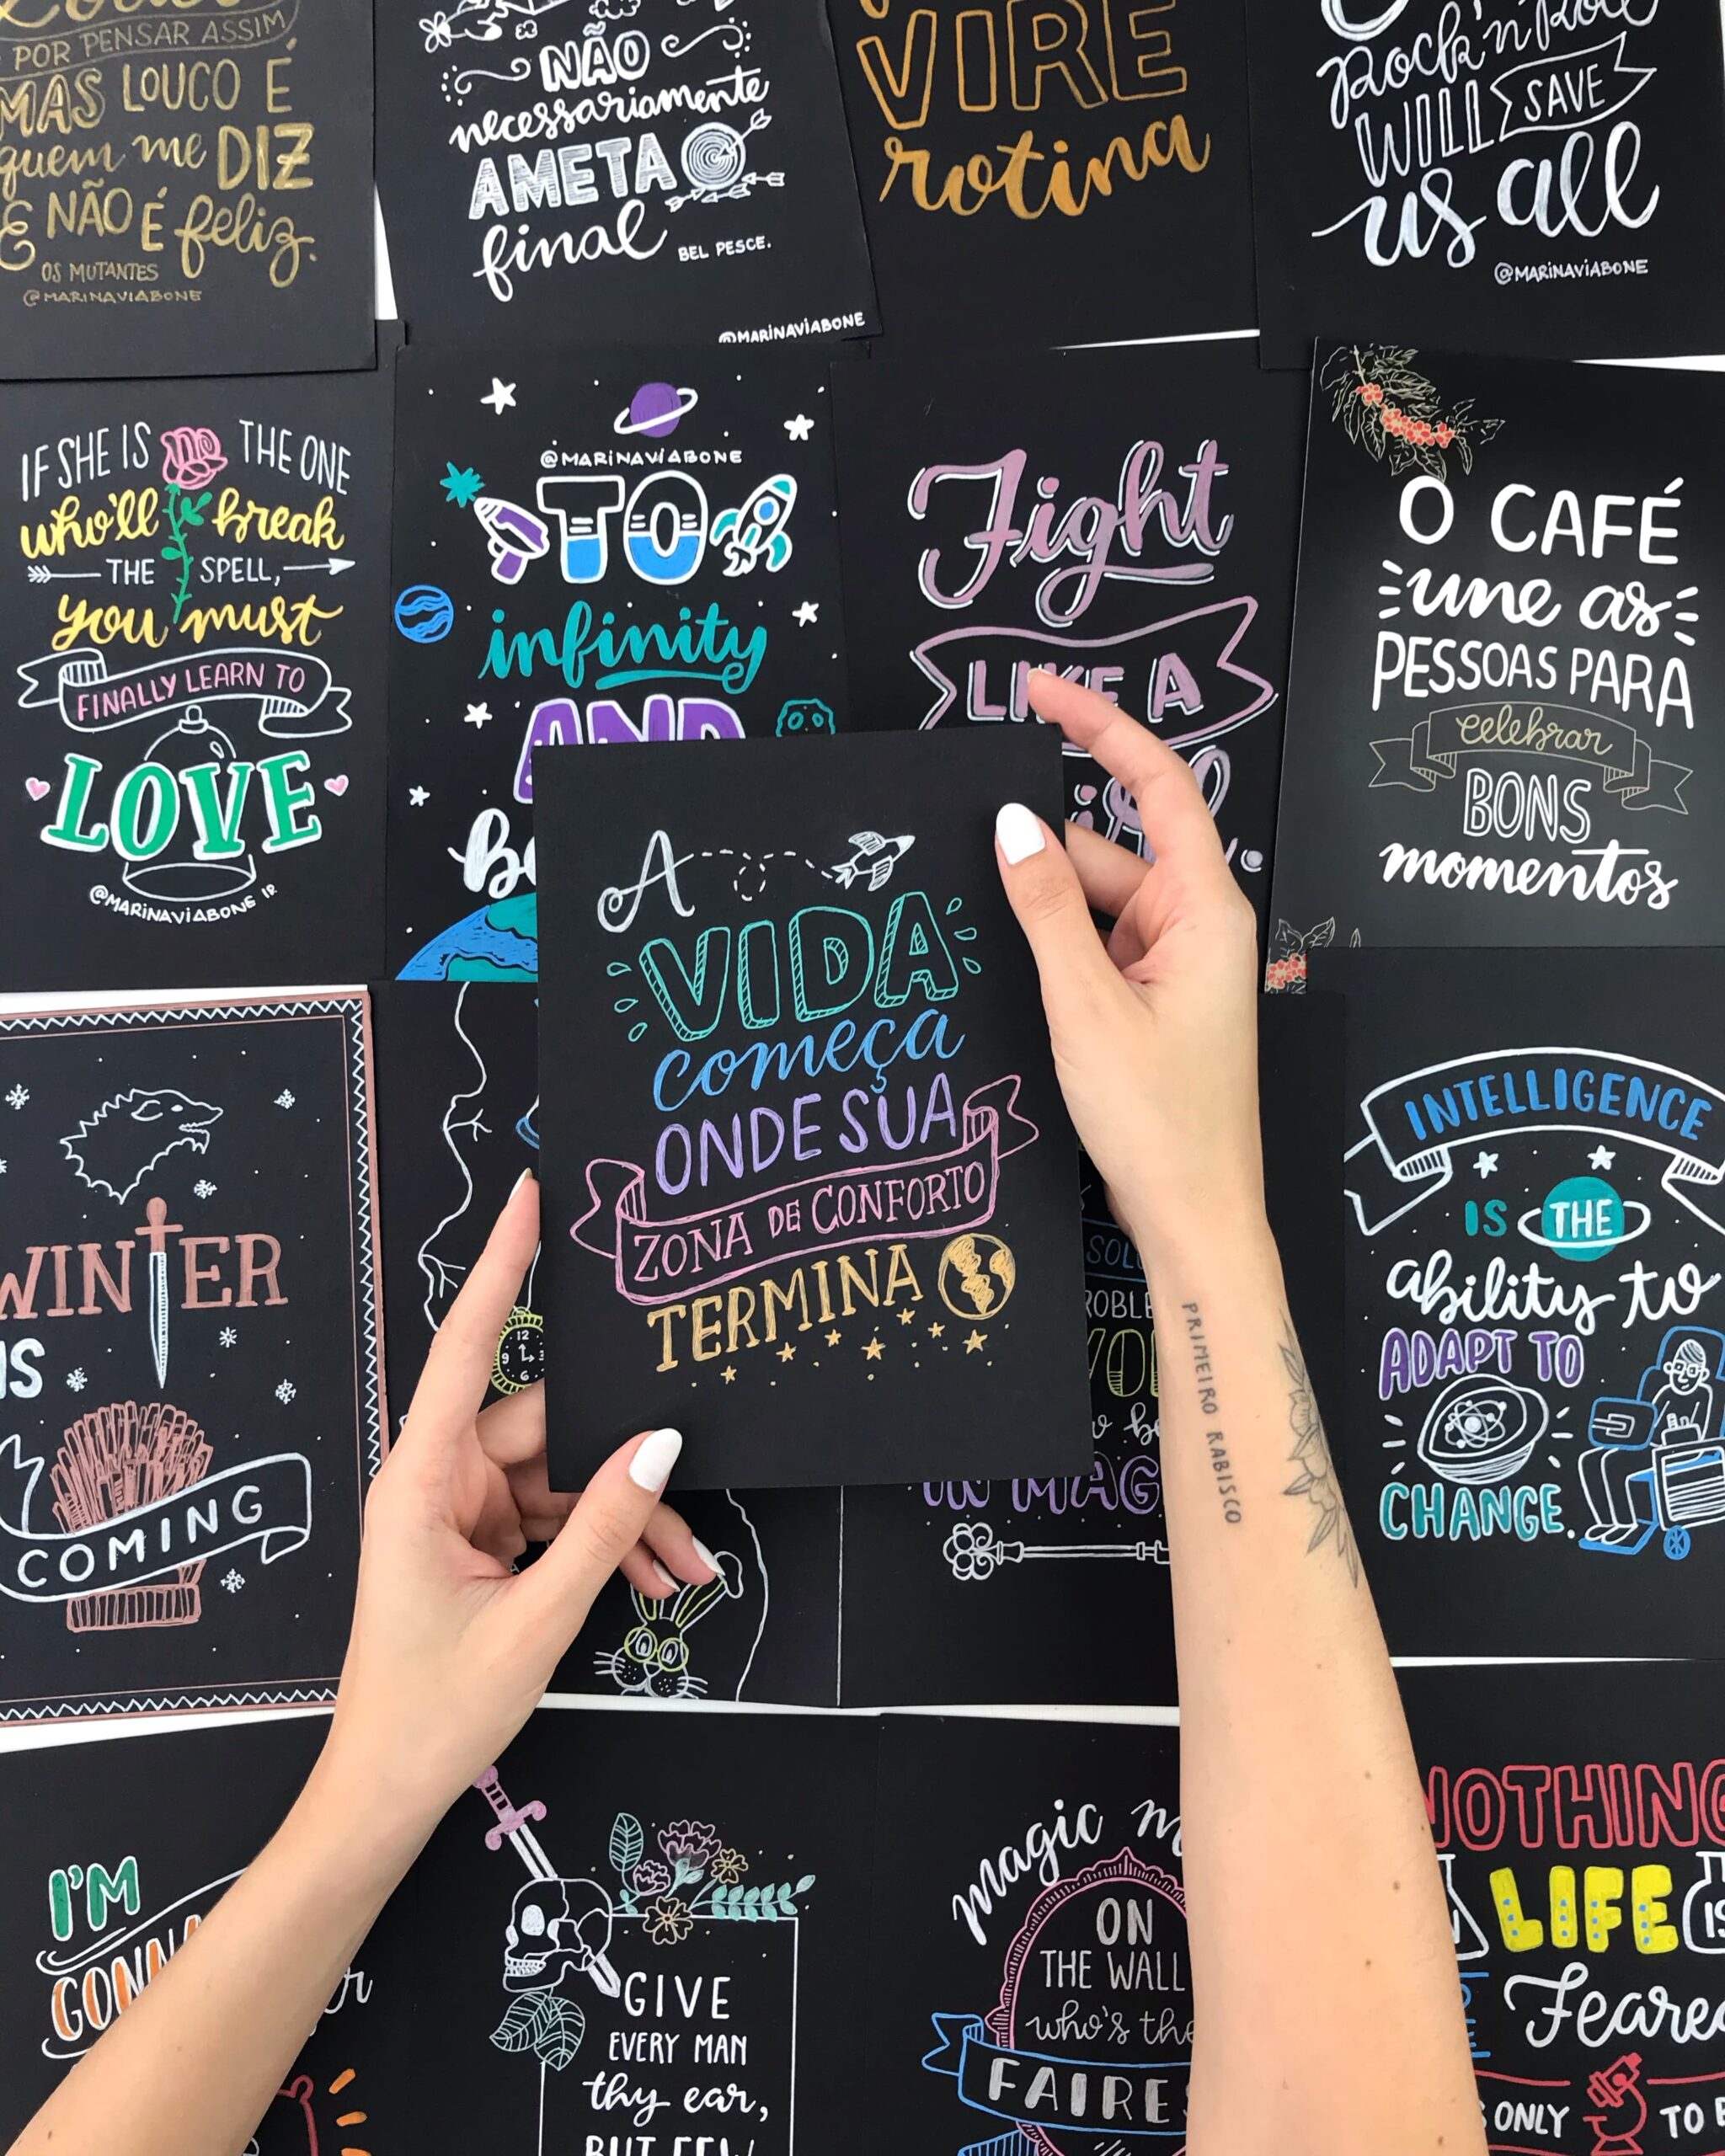 POR PENSAR ASSIM
MAS LOUCO É
quem me DIZ
E NÃO É feliz.
OS MUTANTES
@MARINAVIABONE
NÃO
necessariamente
AMETA
final
BEL PESCE.
@MARINAVIABONE
VIRE
rotina
Rock'n'Roll
WILL SAVE
us all
@MARINAVIABONE
IF SHE IS THE ONE
who'll break
THE SPELL,
you must
FINALLY LEARN TO
LOVE
@MARINAVIABONE
@MARINAVIABONE
TO
infinity
AND
Fight
LIKE A
O CAFÉ
une as
PESSOAS PARA
celebrar
BONS
momentos
A
VIDA
começa
ONDE SUA
ZONA DE CONFORTO
TERMINA
WINTER
IS
COMING
12
9
3
6
IN MAG
PRIMEIRO RABISCO
INTELLIGENCE
IS THE
ability to
ADAPT TO
CHANGE.
I'M
GONNA
GIVE
EVERY MAN
thy ear,
BUT FEW
magic m
ON
THE WALL
who's the
FAIRES
NOTHING
LIFE IS
Feared
ONLY TO B